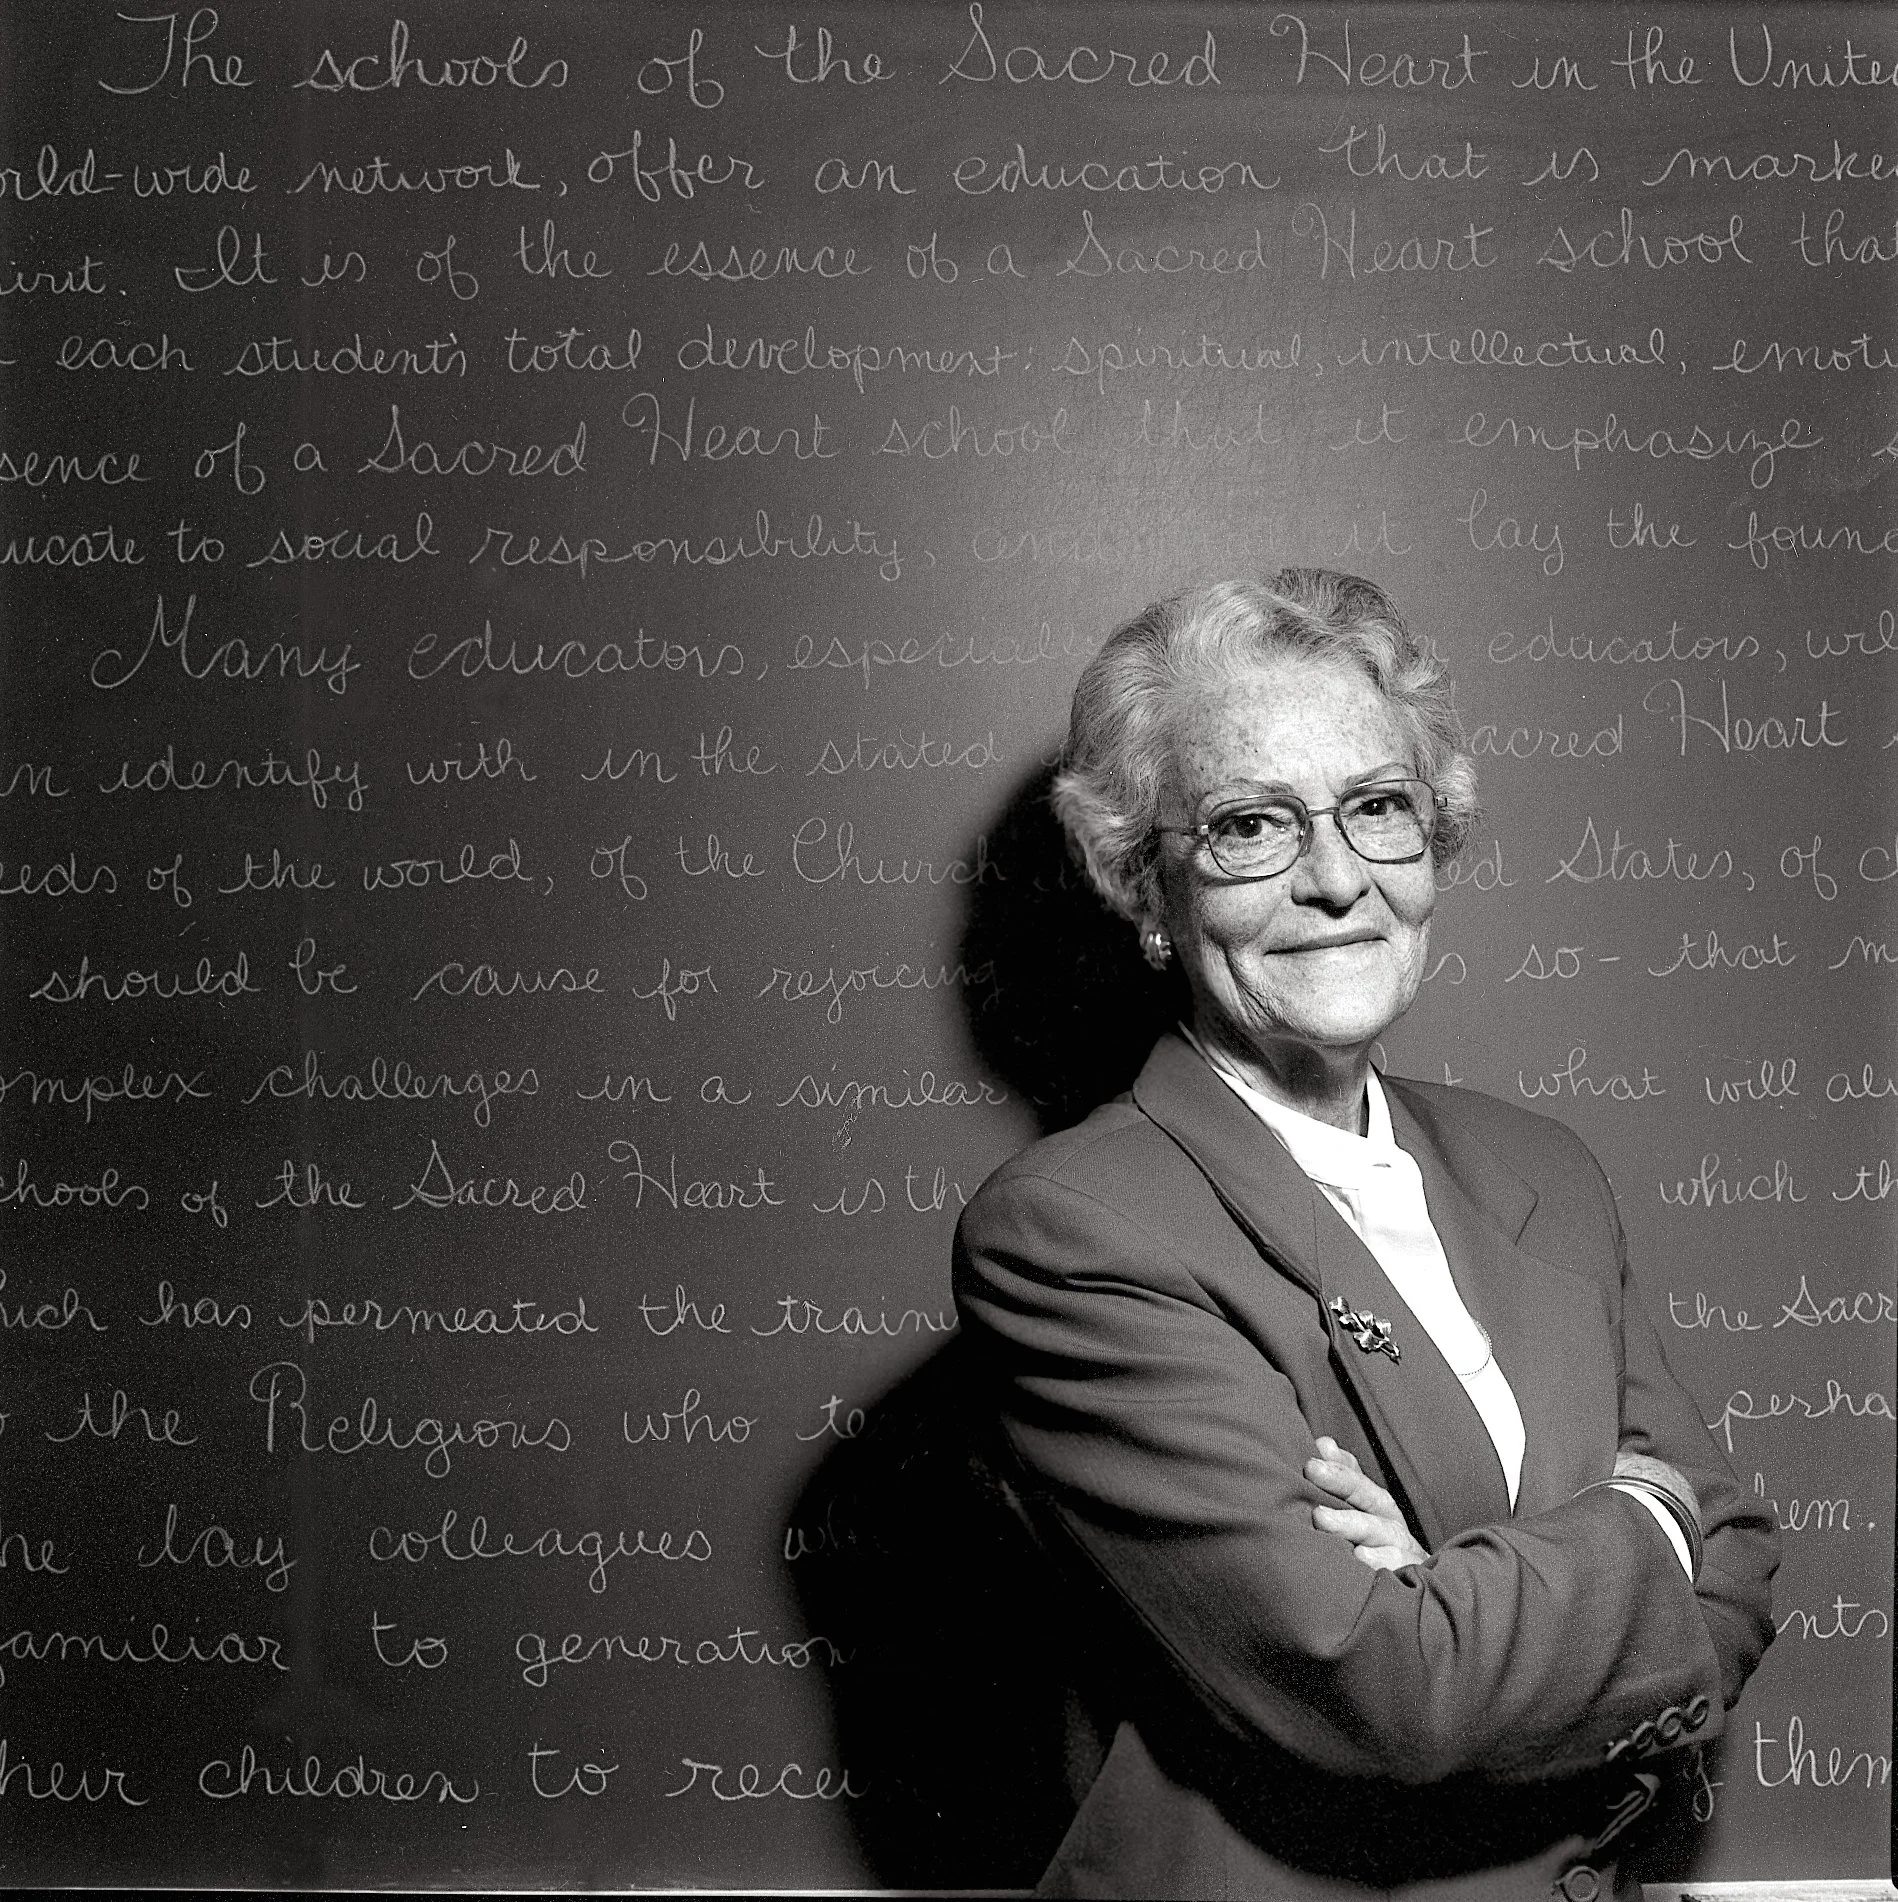 The schools of the Sacred Heart in the United
orld-wide network, offer an education that is marke
irit. It is of the essence of a Sacred Heart school tha
each student's total development: spiritual, intellectual, emoti
sence of a Sacred Heart school that it emphasize s
ucate to social responsibility, it lay the found
Many educators, especiall educators, wil
n identify with in the stated acred Heart
eeds of the world, of the Church ed States, of c
should be cause for rejoicing s so - that m
omplex challenges in a similar t what will alw
chools of the Sacred Heart is th which th
hich has permeated the traini the Sacr
the Religious who te perha
he lay colleagues wh hem.
familiar to generation nts
heir children to recei y them